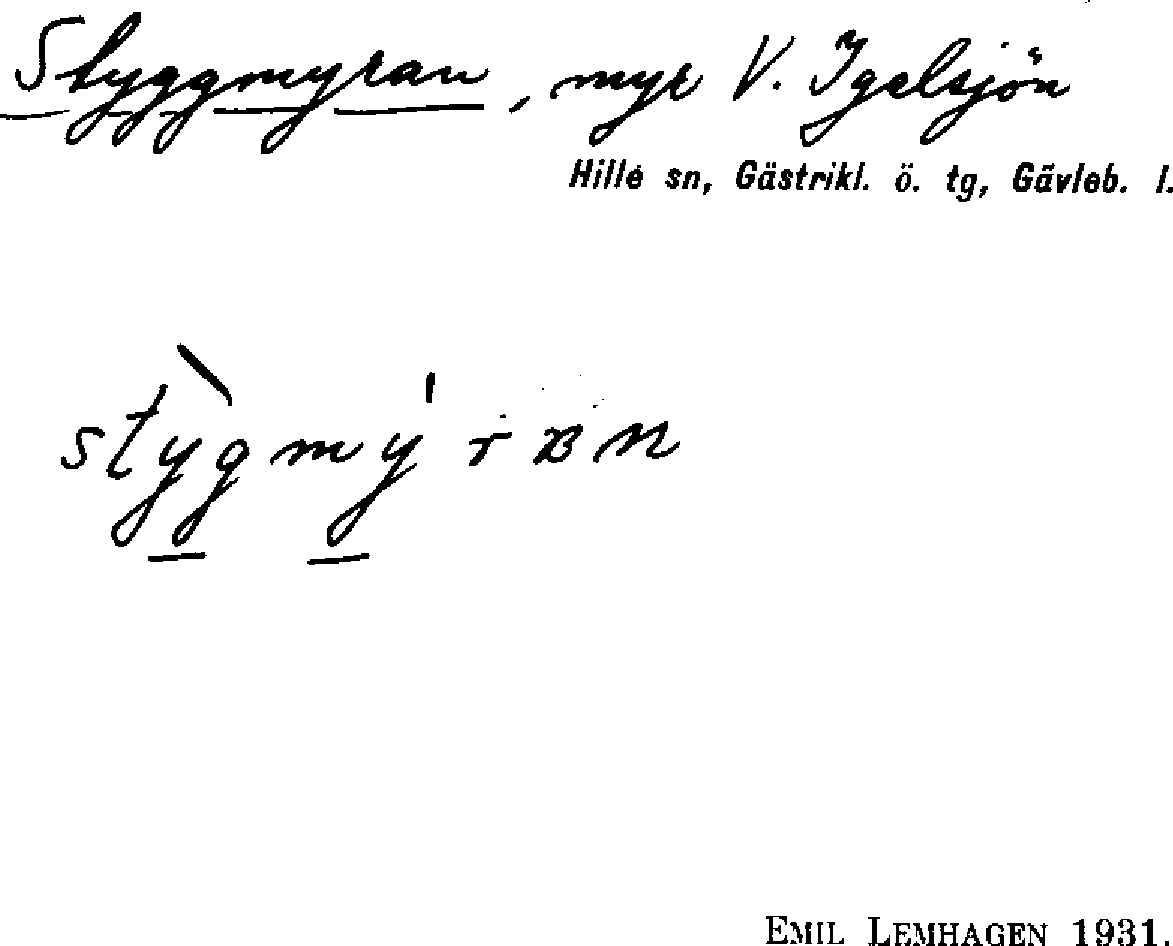 Styggmyran, myr V. Igelsjön
Hille sn, Gästrikl. ö. tg, Gävleb. l.
stỳgmýrαn
EMIL LEMHAGEN 1931.